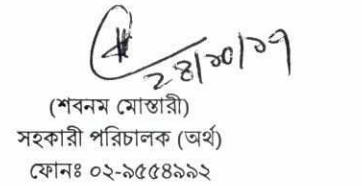 ২৪/১০/১৭
(শবনম মোস্তারী)
সহকারী পরিচালক (অর্থ)
ফোনঃ ০২-৯৫৫৪৯৯২